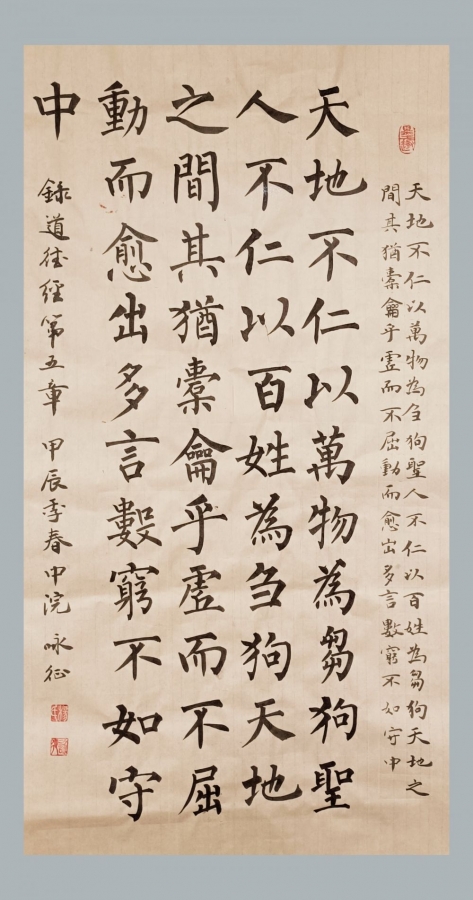 天地不仁以萬物為刍狗聖人不仁以百姓為芻狗天地之
間其猶橐龠乎虛而不屈動而愈出多言數窮不如守中
天地不仁以萬物為芻狗聖
人不仁以百姓為刍狗天地
之間其猶橐龠乎虛而不屈
動而愈出多言數窮不如守
中
錄道德經第五章 甲辰季春中浣 咏征